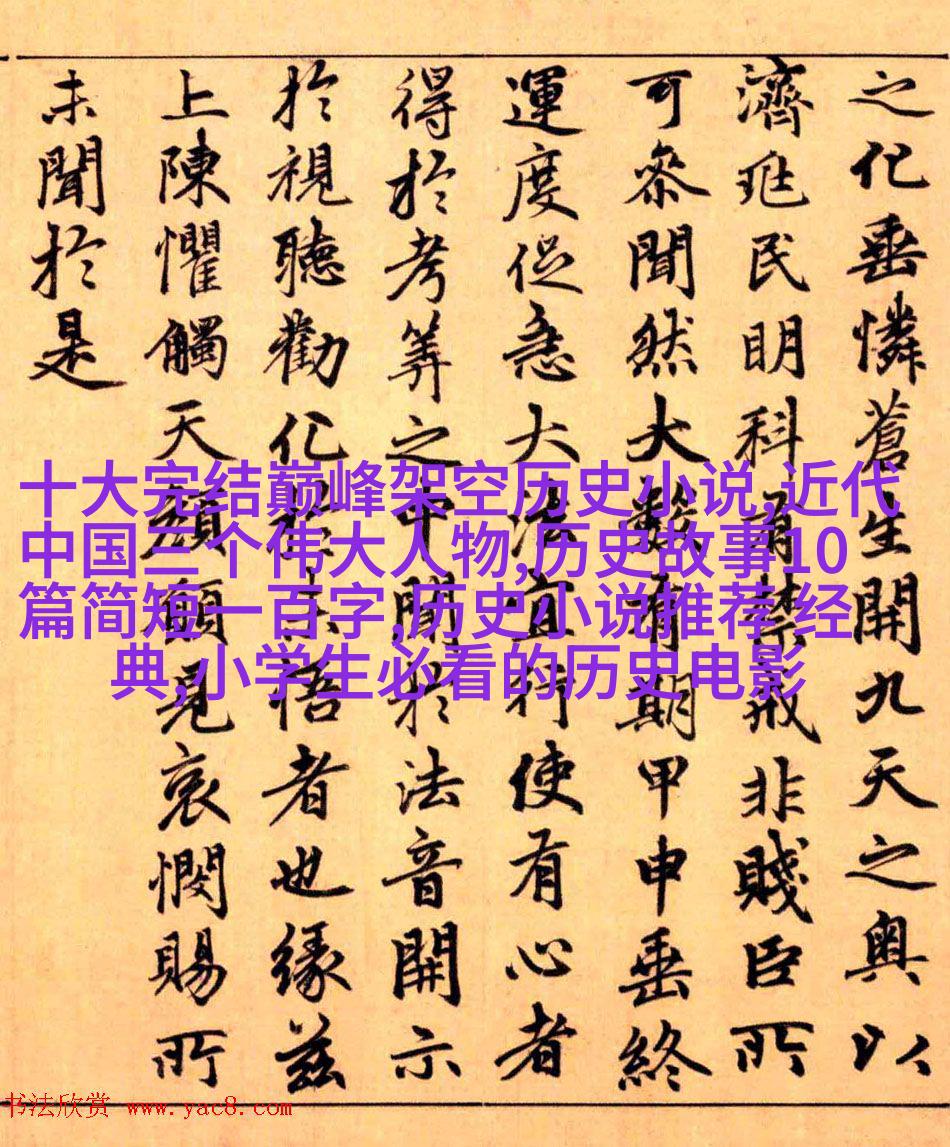 之化垂憐蒼生開九天之奧以
濟兆民明科禁戒非賤臣所
可參聞然大數有期甲申垂終
運度促急大法宜行使有心者
得於考筭之中聞於法音開示
於視聽勸化於未悟者也緣茲
上陳懼觸天顏願見哀憫賜所
未聞於是
十大完结巅峰架空历史小说,近代
中国三个伟大人物,历史故事10
篇简短一百字,历史小说推荐 经
典,小学生必看的历史电影
书法欣赏 www.yac8.com